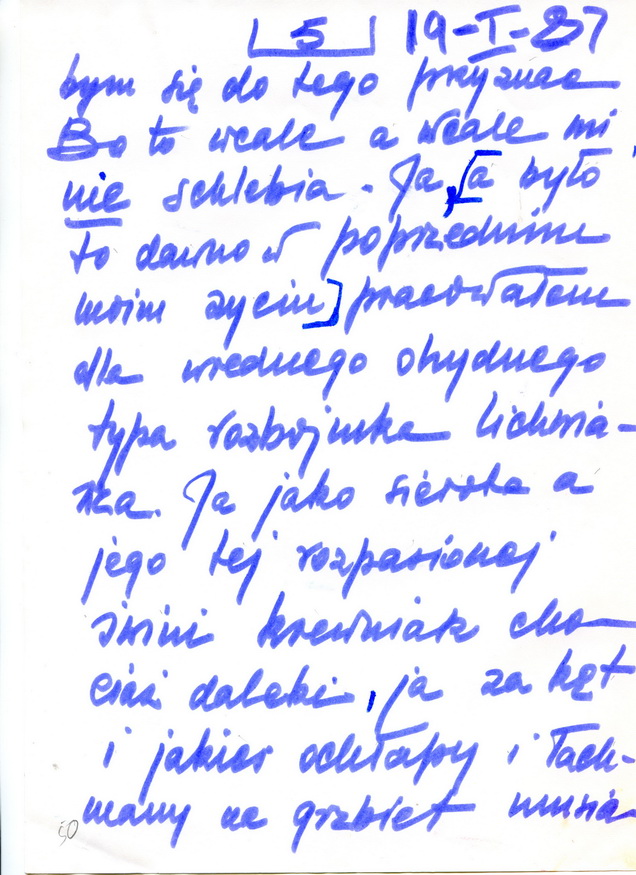 5 19-I-87
bym się do tego przyznać
Bo to wcale a wcale mi
nie schlebia. Ja, [a było
to dawno w poprzednim
moim życiu] pracowałem
dla wrednego ohydnego
typa rozbójnika lichwia-
rza. Ja jako sierota a
jego tej rozpasionej
świni krewniak cho-
ciaż daleki, ja za kąt
i jakieś ochłapy i łach-
many na grzbiet musia
50